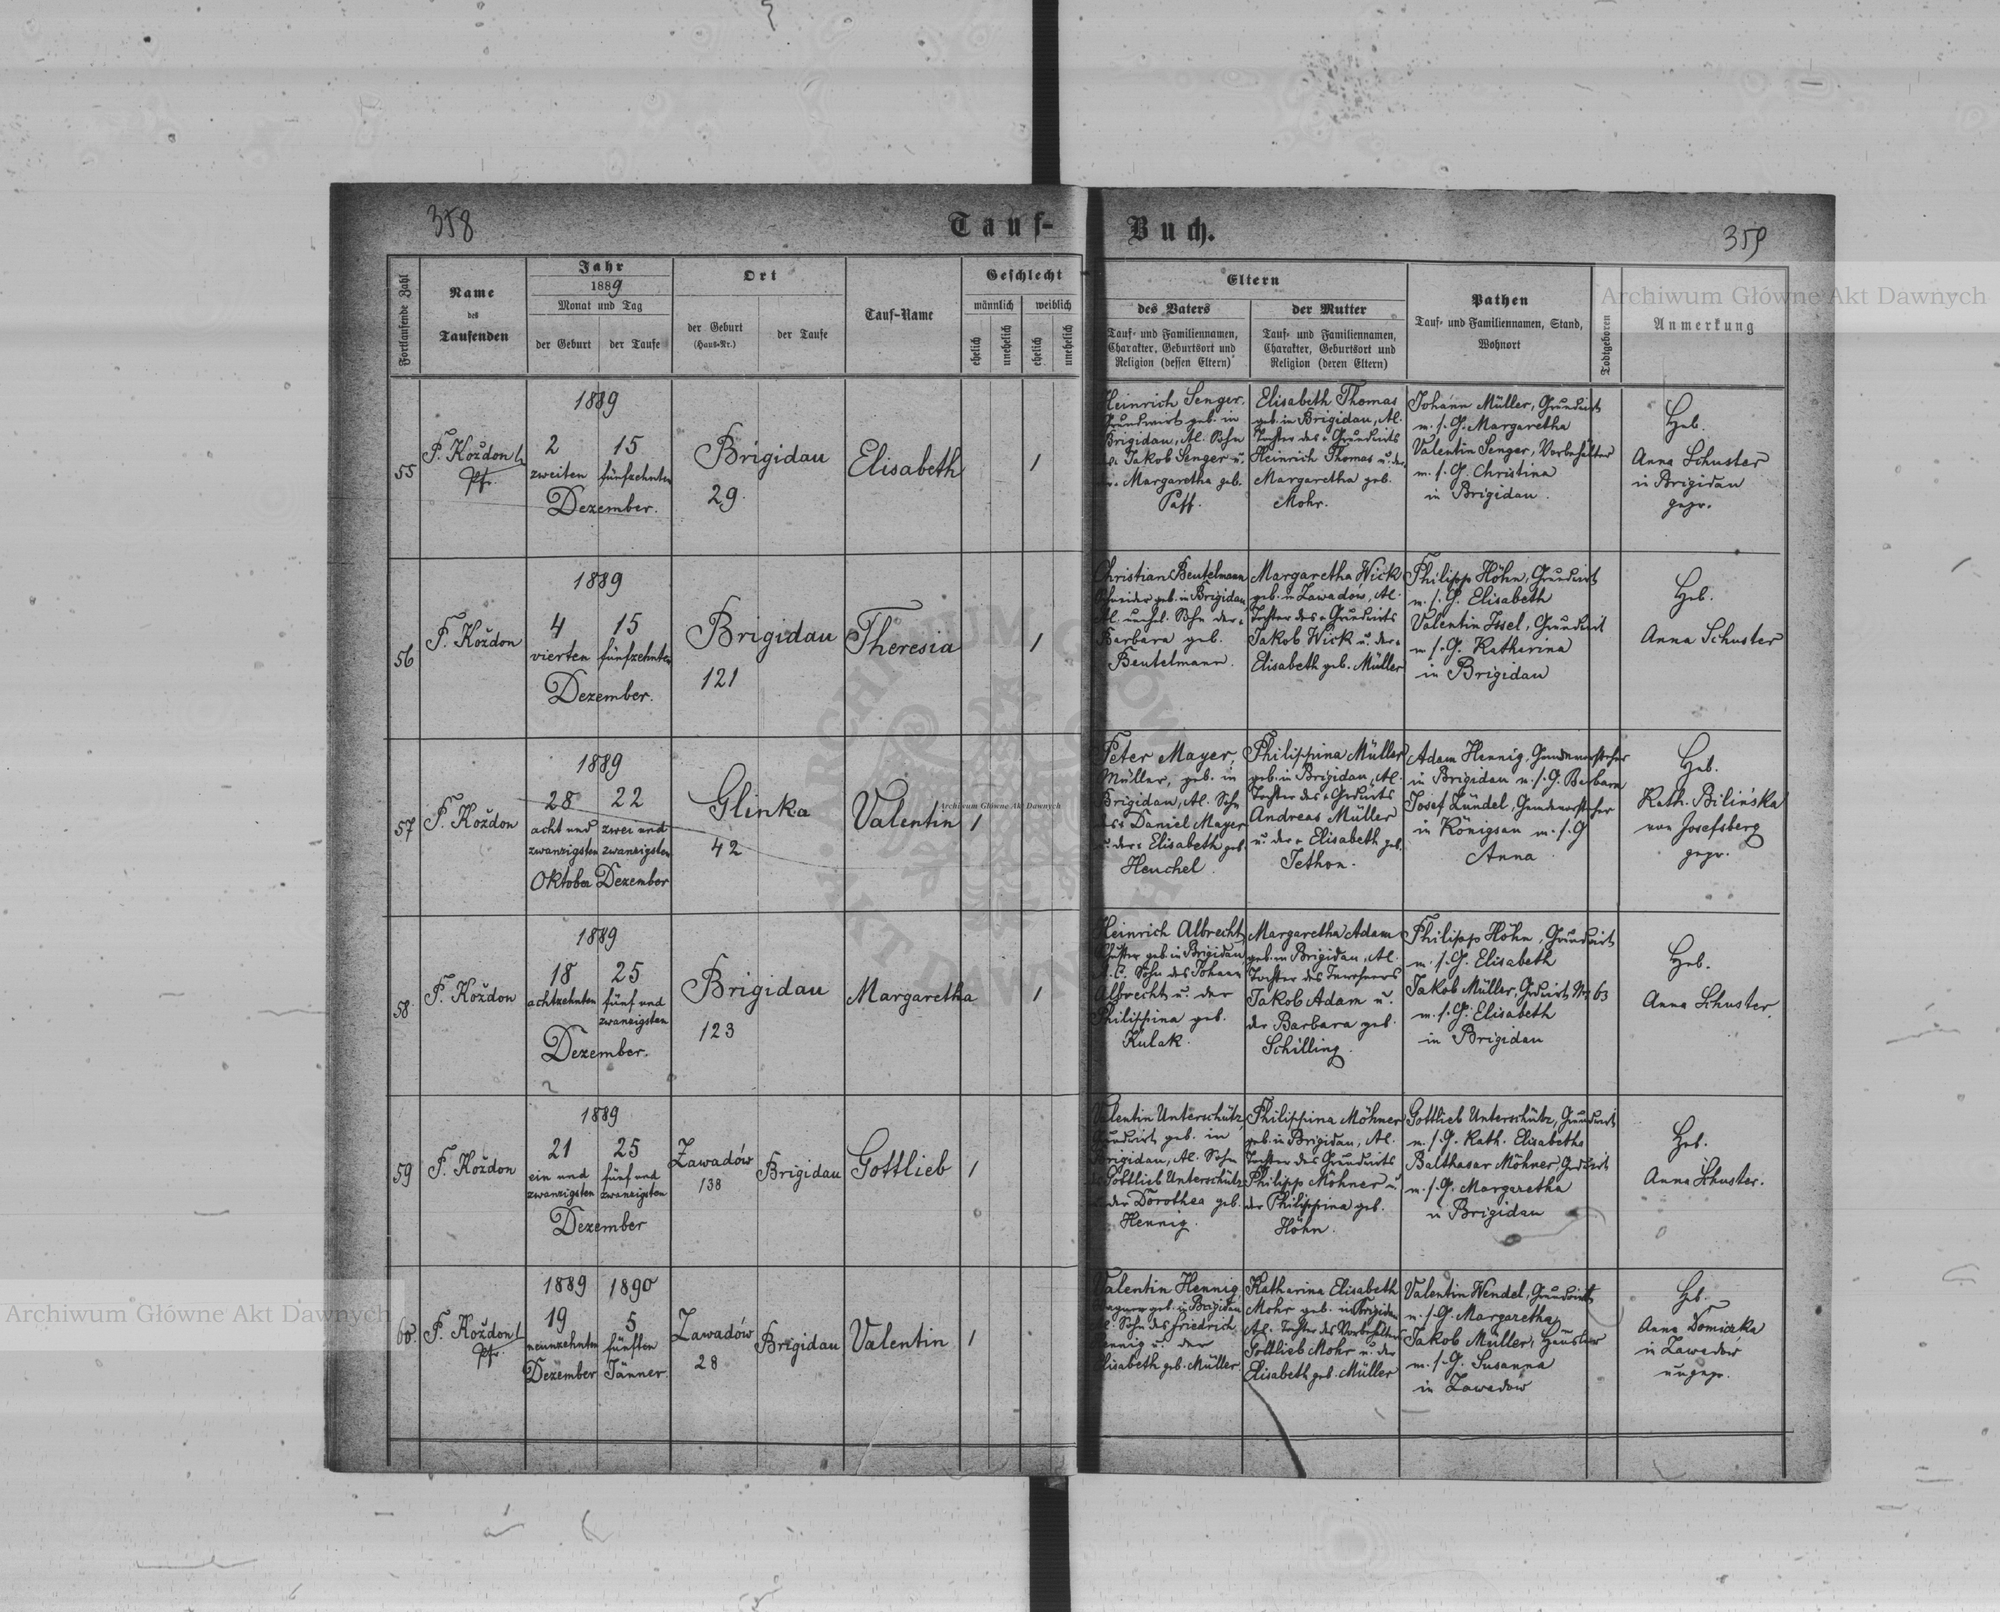 358
Tauf-
Buch.
359
Fortlaufende Zahl
Name
des
Taufenden
Jahr
1889
Monat und Tag
der Geburt
der Taufe
Ort
der Geburt
(Haus-Nr.)
der Taufe
Tauf-Name
Geschlecht
männlich
weiblich
ehelich
unehelich
ehelich
unehelich
Eltern
des Vaters
Tauf- und Familiennamen,
Charakter, Geburtsort und
Religion (dessen Eltern)
der Mutter
Tauf- und Familiennamen,
Charakter, Geburtsort und
Religion (deren Eltern)
Pathen
Tauf- und Familiennamen, Stand,
Wohnort
Todtgeboren
Anmerkung
55
F. Koždon
Pfr.
1889
2
zweiten
15
fünfzehnten
Dezember.
Brigidau
29.
Elisabeth
1
Heinrich Senger,
Grundwirt geb. in
Brigidau, Al. Sohn
Jakob Senger u.
Margaretha geb.
Paff.
Elisabeth Thomas
geb. in Brigidau, Al.
Tochter des Grundwirts
Heinrich Thomas u. der
Margaretha geb.
Mohr.
Johann Müller, Grundwirt
m. s. G. Margaretha
Valentin Senger, Vorbehälter
m. s. G. Christina
in Brigidau.
Heb.
Anna Schuster
in Brigidau
gepr.
56
F. Koždon
1889
4
vierten
15
fünfzehnten
Dezember.
Brigidau
121
Theresia
1
Christian Beutelmann
Schneider geb. in Brigidau
Al. unehel. Sohn der
Barbara geb.
Beutelmann.
Margaretha Wick
geb. in Zawadów, Al.
Tochter des Grundwirts
Jakob Wick u. der
Elisabeth geb. Müller
Philipp Höhn, Grundwirt
m. s. G. Elisabeth
Valentin Issel, Grundwirt
m. s. G. Katharina
in Brigidau
Heb.
Anna Schuster
57
F. Koždon
1889
28
acht und
zwanzigsten
Oktober
22
zwei und
zwanzigsten
Dezember
Glinka
42
Valentin
1
Peter Mayer,
Müller, geb. in
Brigidau, Al. Sohn
des Daniel Mayer
u. der Elisabeth geb.
Henchel.
Philippina Müller
geb. in Brigidau, Al.
Tochter des Grdwirts
Andreas Müller
u. der Elisabeth geb.
Tethon.
Adam Hennig, Gemdevorsteher
in Brigidau m. s. G. Barbara
Josef Zündel, Gemdevorsteher
in Königsau m. s. G
Anna
Heb.
Kath. Bilińska
von Josefsberg
gepr.
58
F. Koždon
1889
18
achtzehnten
25
fünf und
zwanzigsten
Dezember.
Brigidau
123
Margaretha
1
Heinrich Albrecht,
Schuster geb. in Brigidau,
A. C. Sohn des Johann
Albrecht u. der
Philippina geb.
Kulak.
Margaretha Adam
geb. in Brigidau, Al.
Tochter des Inwohners
Jakob Adam u.
der Barbara geb.
Schilling.
Philipp Höhn, Grundwirt
m. s. G. Elisabeth
Jakob Müller, Grdwirt Nr 63
m. s. G. Elisabeth
in Brigidau
Heb.
Anna Schuster.
59
F. Koždon
1889
21
ein und
zwanzigsten
25
fünf und
zwanzigsten
Dezember
Zawadów
138
Brigidau
Gottlieb
1
Valentin Unterschütz,
Grundwirt geb. in
Brigidau, Al. Sohn
Gottlieb Unterschütz
der Dorothea geb.
Hennig.
Philippina Möhner
geb. in Brigidau, Al.
Tochter des Grundwirts
Philipp Möhner u.
der Philippina geb.
Höhn.
Gottlieb Unterschütz, Grundwirt
m. s. G. Kath. Elisabetha
Balthasar Möhner, Grdwirt
m. s. G. Margaretha
in Brigidau
Heb.
Anna Schuster.
60.
F. Koždon
Pfr.
1889
19
neunzehnten
Dezember
1890
5
fünften
Jänner.
Zawadów
28
Brigidau
Valentin
1
Valentin Hennig,
Wagner geb. in Brigidau
Al. Sohn des Friedrich
Hennig u. der
Elisabeth geb. Müller.
Katharina Elisabeth
Mohr geb. in Brigidau
Al. Tochter des Vorbehälters
Gottlieb Mohr u. der
Elisabeth geb. Müller
Valentin Wendel, Grundwirt
m. s. G. Margaretha,
Jakob Müller, Häusler
m. s. G. Susanna
in Zawadów
Heb.
Anna Domicka
in Zawadów
ungepr.
Archiwum Główne Akt Dawnych
Archiwum Główne Akt Dawnych
Archiwum Główne Akt Dawnych
ARCHIWUM GŁÓWNE AKT DAWNYCH